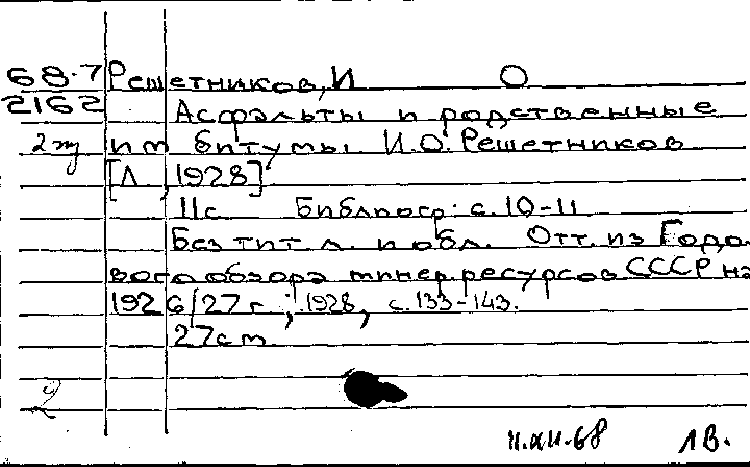 68-7 Решетников, И О.
2162 Асфальты и родственные
2 им битумы. И.О. Решетников
[Л., 1928]
11с Библиогр: с. 10-11
Без тит. л. и обл. Отт. из Годо
вого обзора минер. ресурсов СССР на
1926/27 г.; 1928, с. 133-143.
27см
2
11.XII.68 ЛВ.